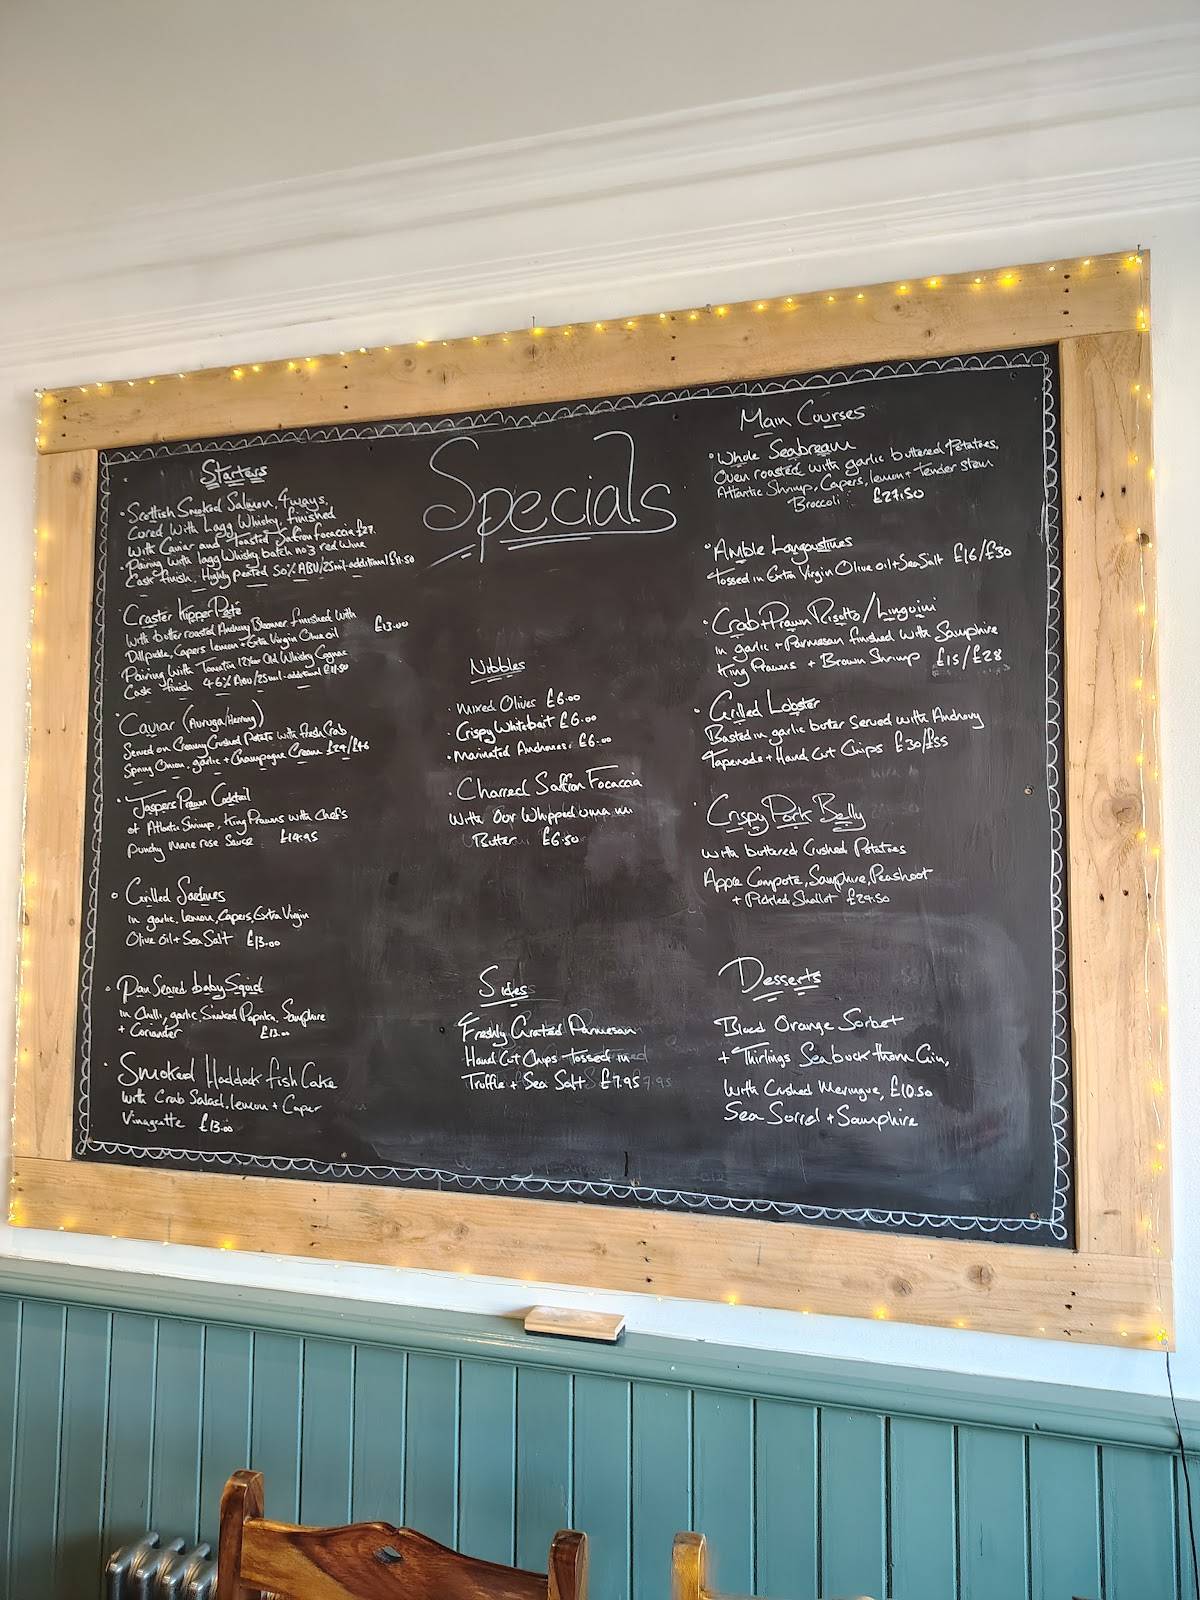 Specials
Starters
· Scottish Smoked Salmon, 4 ways,
Cured With Lagg Whisky, finished
With Caviar and Toasted Saffron focaccia £27.
· Pairing with lagg Whisky batch no 3 red wine
Cask finish, Highly peated 50% ABV/25ml-additional £11.50
· Craster Kipper Pate
With butter roasted Anchovy Bloomer finished with
Dill, Capers lemon + Extra Virgin Olive oil £13.00
Pairing With Tomatin 12 Year Old Whisky Cognac
Cask finish 46% ABV/25ml-additional £11.50
· Caviar (Avruga/Herring)
Served on Creamy Crushed Potato with fresh Crab
Spring Onion, garlic + Champagne Cream £24/£46
· Jaspers Prawn Cocktail
of Atlantic Shrimp, King Prawns with Chefs
punchy Marie rose Sauce £14.95
· Grilled Sardines
in garlic, lemon, Capers, Extra Virgin
Olive oil + Sea Salt £13.00
· Pan Seared baby Squid
in Chilli, garlic, Smoked Paprika, Samphire
+ Coriander £13.00
· Smoked Haddock fish Cake
with Crab Salad, lemon + Caper
Vinagrette £13.00
Nibbles
· Mixed Olives £6.00
· Crispy Whitebait £6.00
· Marinated Anchovies. £6.00
· Charred Saffron Focaccia
With Our Whipped
Butter £6.50
Sides
Freshly Grated Parmesan
Hand Cut Chips tossed in
Truffle + Sea Salt £7.95
Main Courses
· Whole Seabream
Oven roasted with garlic buttered Potatoes,
Atlantic Shrimp, Capers, lemon + Tender stem
Broccoli £27.50
· Amble Langoustines
tossed in Extra Virgin Olive oil + Sea Salt £16/£30
· Crab + Prawn Risotto/Linguini
in garlic + Parmesan finished with Samphire
King Prawns + Brown Shrimp £15/£28
· Grilled Lobster
Basted in garlic butter Served with Anchovy
Tapenade + Hand Cut Chips £30/£55
· Crispy Pork Belly
with buttered Crushed Potatoes
Apple Compote, Samphire, Peashoot
+ Pickled Shallot £24.50
Desserts
Blood Orange Sorbet
+ Thirlings Seabuckthorn Gin,
With Crushed Meringue, £10.50
Sea Sorrel + Samphire